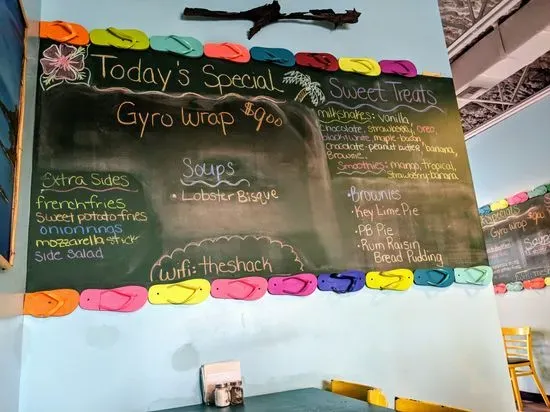 Today's Special
Gyro Wrap $9.00
Soups
• Lobster Bisque
Extra Sides
french fries
Sweet potato fries
onion rings
mozzarella stick
side salad
wifi: theshack
Sweet Treats
milkshakes: vanilla
chocolate, strawberry, oreo,
black&white, maple-bacon
chocolate-peanut butter, banana,
Brownie.
Smoothies: mango, tropical,
strawberry-banana
• Brownies
• Key Lime Pie
• PB Pie
• Rum Raisin
Bread Pudding
Special
Gyro Wrap
Soups